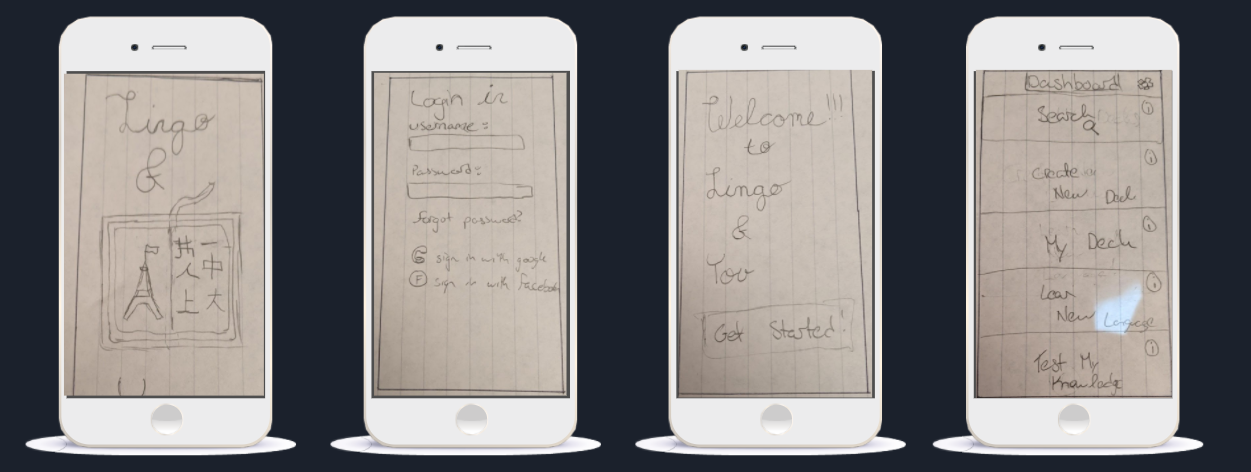 Lingo
&
一
中
大
人
上
Login in
username:
Password:
forgot password?
G sign in with google
F sign in with facebook
Welcome!!!
to
Lingo
&
You
Get Started!
Dashboard
Search
i
Create
New Deck
i
My Deck
i
New Language
i
Test My
Knowledge
i